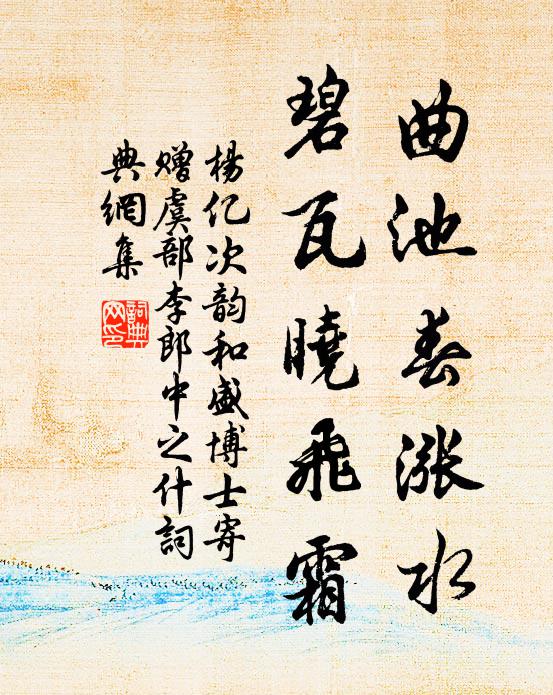 曲池春涨水
碧瓦曉飛霜
楊亿次韵和盛博士寄
赠虞部李郎中之什詞
典網集
詞典网印